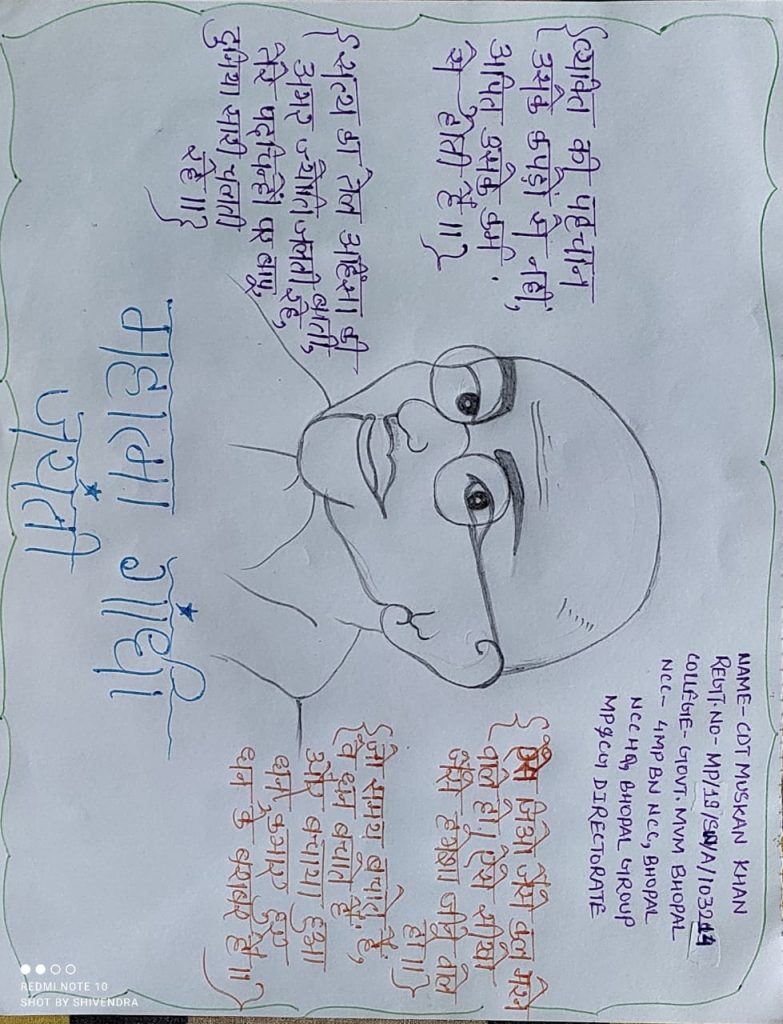 NAME- CDT MUSKAN KHAN
REGT.NO- MP/19/SW/A/103214
COLLEGE- GOVT. MVM BHOPAL
NCC- 4MP BN NCC, BHOPAL
NCC HQ BHOPAL GROUP
MP&CG DIRECTORATE
{व्यक्ति की पहचान
उसके कपड़ों से नहीं,
अपितु उसके कर्मो
से होती है॥}
{सत्य का तेल अहिंसा की
अमर ज्योति जलती बाती,
तेरे पदचिन्हों पर बापू,
दुनिया सारी चलती
रहे॥}
{ऐसे जिओ जैसे कल मरने
वाले हो। ऐसे सीखो
जैसे हमेशा जीने वाले
हो॥}
{जो समय बचाते हैं,
वे धन बचाते हैं,
और बचाया हुआ
धन कमाए हुए
धन के बराबर है॥}
महात्मा गांधी
जयंती
REDMI NOTE 10
SHOT BY SHIVENDRA